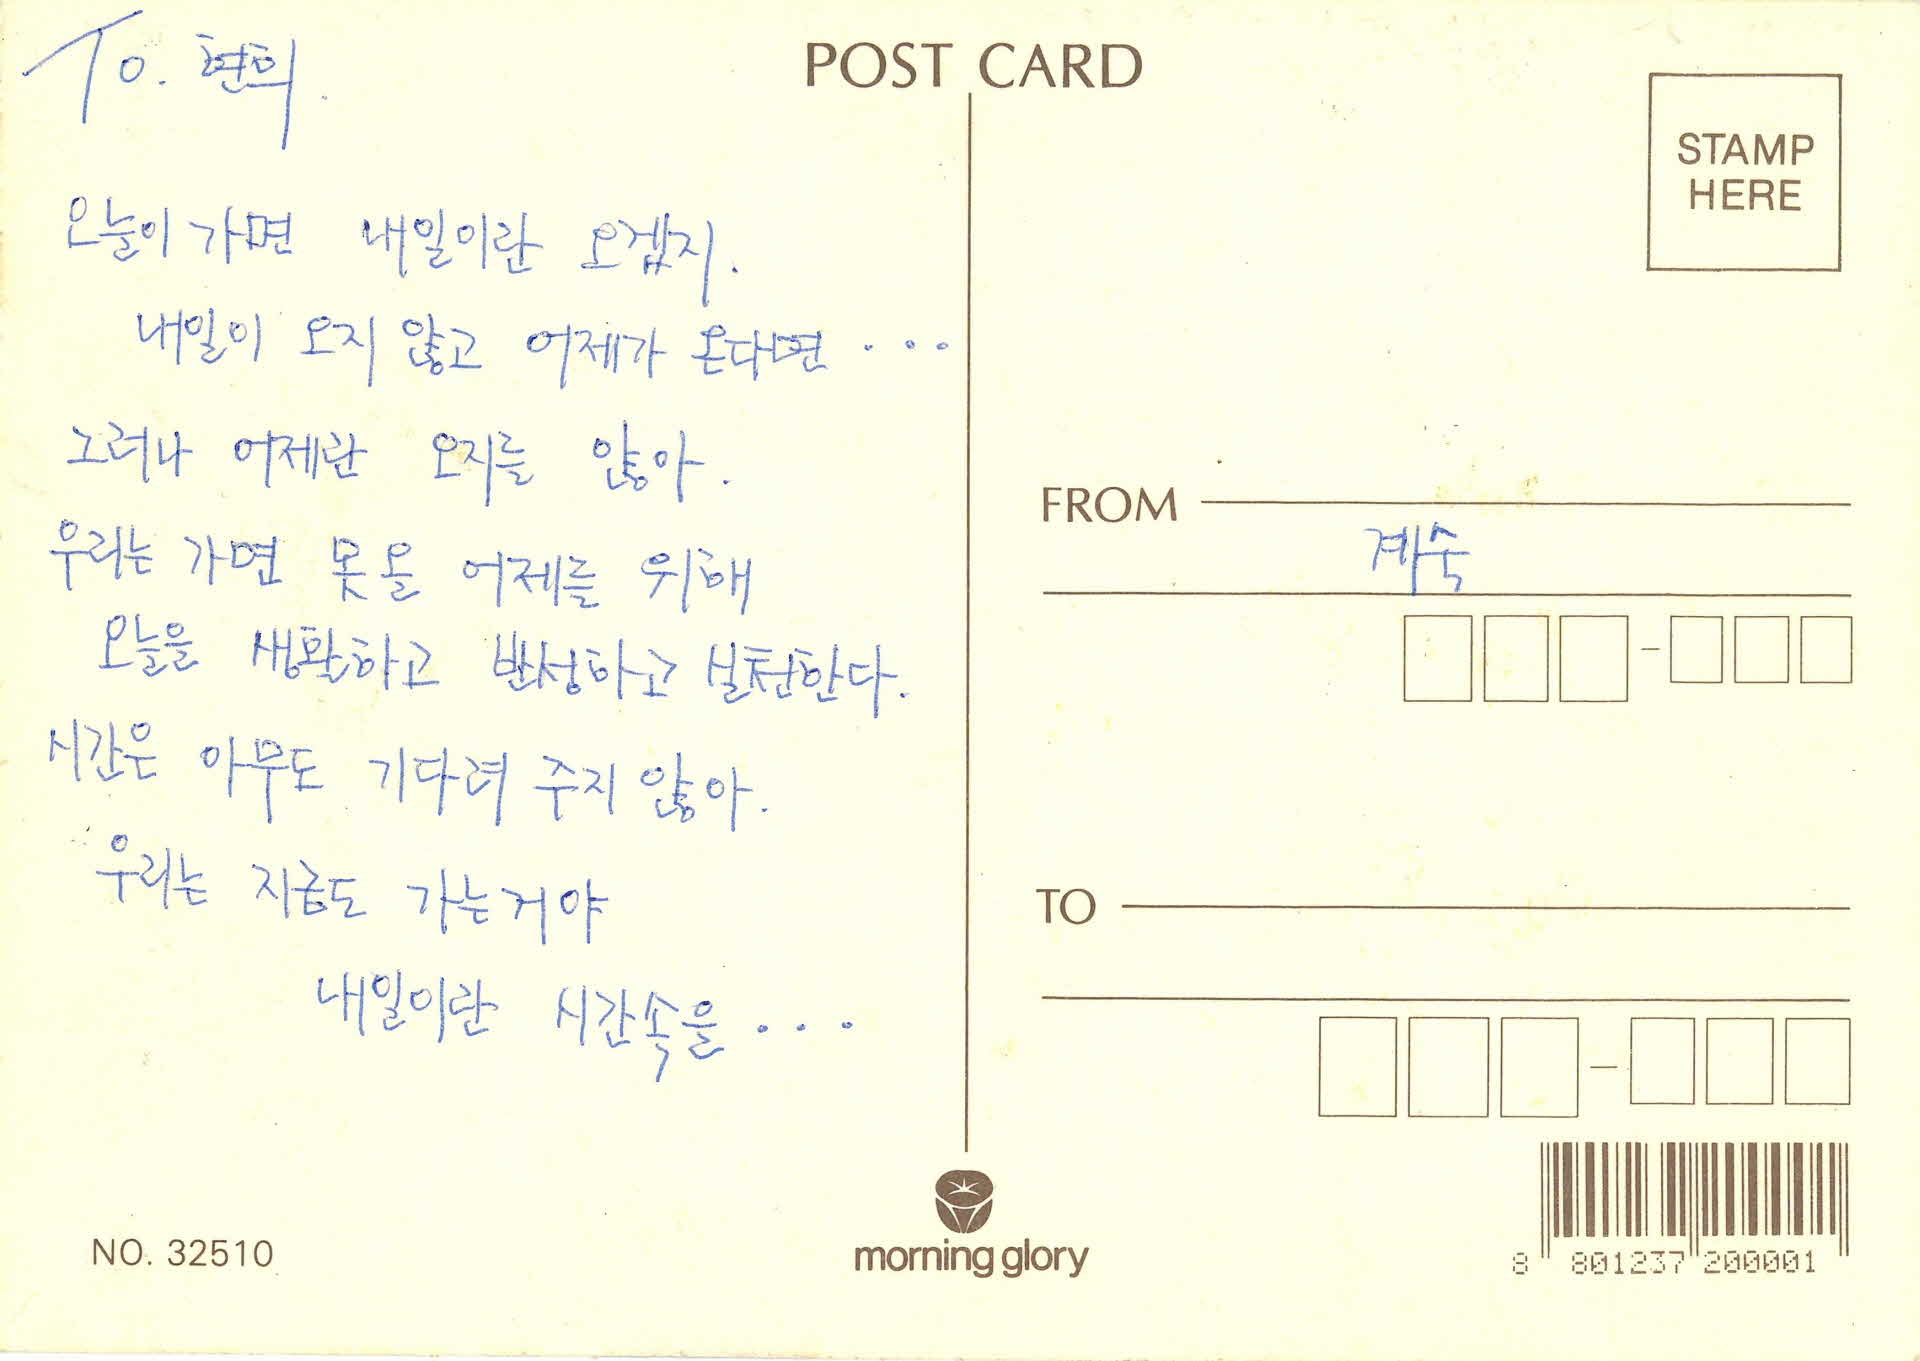 To. 현희.
오늘이 가면 내일이란 오겠지.
내일이 오지 않고 어제가 온다면 ...
그러나 어제란 오지를 않아.
우리는 가면 못올 어제를 위해
오늘을 생활하고 반성하고 실천한다.
시간은 아무도 기다려 주지 않아.
우리는 지금도 가는거야
내일이란 시간속을 ...
NO. 32510
POST CARD
morning glory
STAMP
HERE
FROM
계숙
TO
8 801237 200001